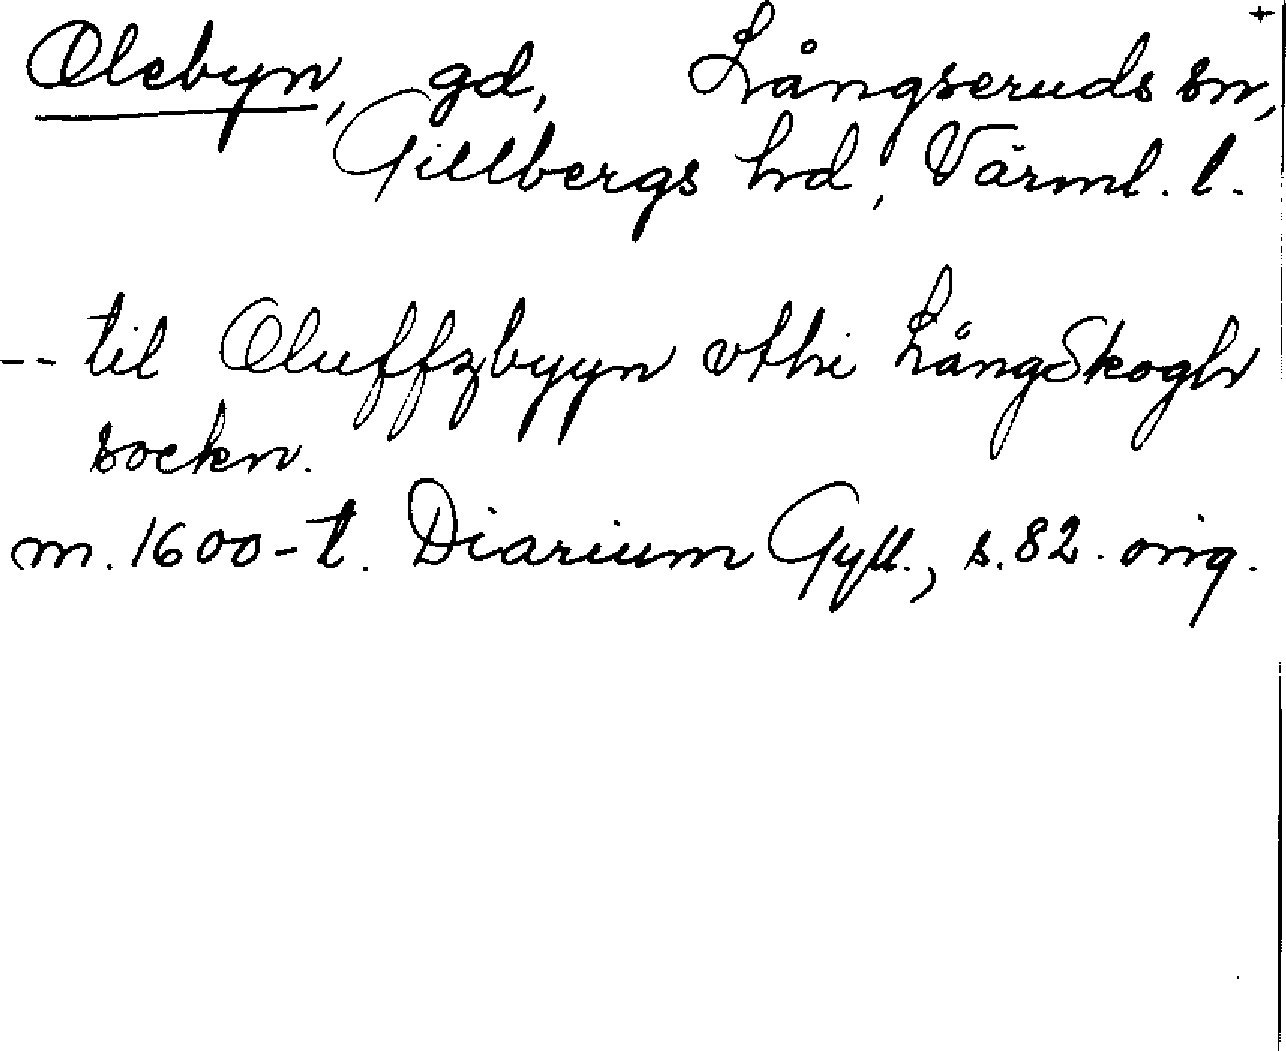 Olebyn, gd, Långseruds sn, +
Gillbergs hrd, Värml. l.
-- til Oluffzbyyn vthi LångSkogh
sockn.
m. 1600-t. Diarium Gyll., s. 82. orig.